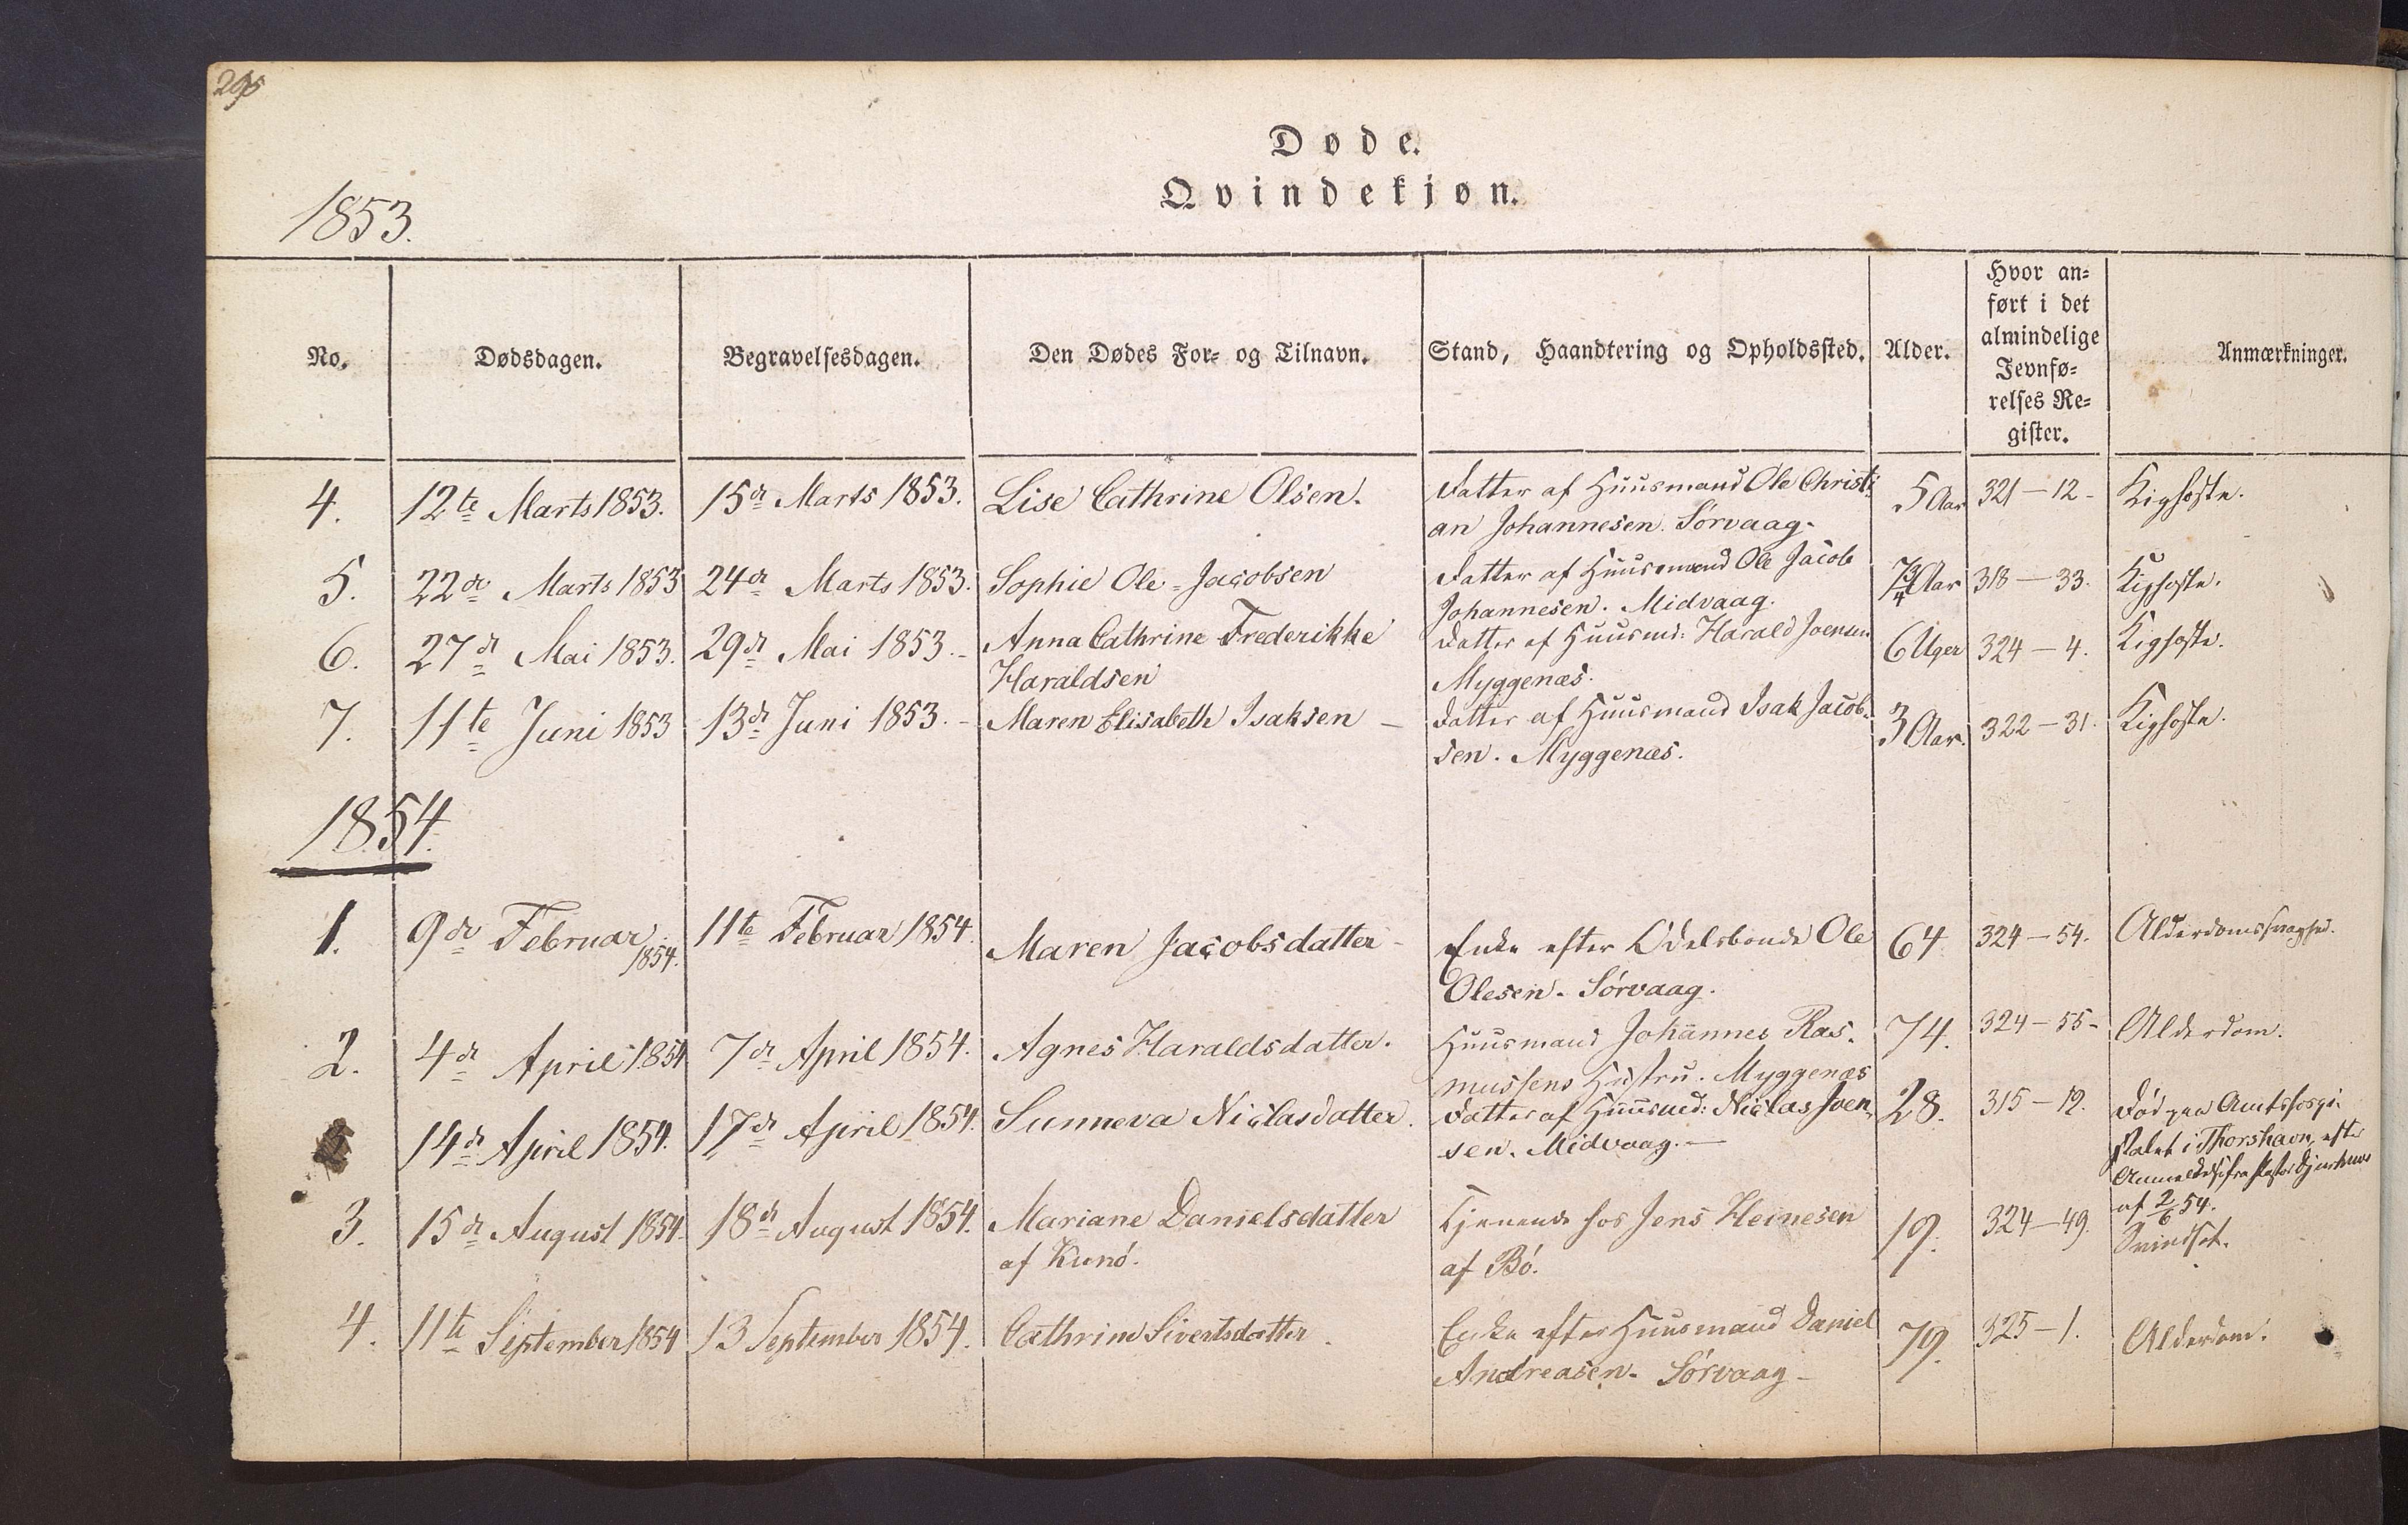 295
Døde.
Qvindekjøn.
1853.
No.
Dødsdagen.
Begravelsesdagen.
Den Dødes For- og Tilnavn.
Stand, Haandtering og Opholdssted.
Alder.
Hvor an=
ført i det
almindelige
Jevnfø=
relses Re=
gister.
Anmærkninger.
4. 12te Marts 1853. 15de Marts 1853. Lise Cathrine Olsen. Datter af Huusmand Ole Christi 5 Aar 321-12- Kighoste.
an Johannesen. Sörvaag.
5. 22de Marts 1853 24de Marts 1853. Sophie Ole-Jacobsen Datter af Huusmand Ole Jacob 3/4 Aar 318-33. Kighoste.
Johannesen. Midvaag.
6. 27de Mai 1853. 29de Mai 1853.- Anna Cathrine Frederikke Datter af Huusmd: Harald Joensen 6 Uger 324-4. Kighoste.
Haraldsen Myggenæs.
7. 11te Juni 1853 13de Juni 1853.- Maren Elisabeth Isaksen - Datter af Huusmand Isak Jacob- 3 Aar. 322-31. Kighoste.
sen. Myggenæs.
1854.
1. 9de Februar 1854. 11te Februar 1854. Maren Jacobsdatter - Enke efter Odelsbonde Ole 64 324-54. Alderdomssvaghed.
Olesen. Sörvaag.
2. 4de April 1854 7de April 1854. Agnes Haraldsdatter. Huusmand Johannes Ras- 74. 324-55- Alderdom.
mussens Hustru. Myggenæs
14de April 1854. 17de April 1854. Sunneva Niclasdatter. Datter af Huusmd: Niclas Joen- 28. 315-12. Död paa Amtshospi-
sen. Midvaag.- talet i Thorshavn, efter
Anmeldelse fra Pastor
af 2/6 54.
3. 15de August 1854. 18de August 1854. Mariane Danielsdatter Tjenende hos Jens Heinesen 19. 324-49. Svindsot.
af Kunö. af Bö.
4. 11te September 1854 13 September 1854. Cathrine Sivertsdatter. Enke efter Huusmand Daniel 79. 325-1. Alderdom.
Andreasen. Sörvaag-